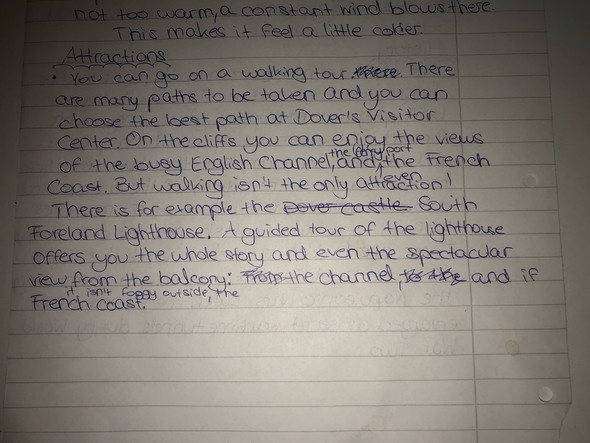 not too warm, a constant wind blows there.
This makes it feel a little colder.
Attractions
• You can go on a walking tour. There
are many paths to be taken and you can
choose the best path at Dover's Visitor
Center. On the cliffs you can enjoy the views
the ferry port
of the busy English Channel, and, the French
even
Coast. But walking isn't the only attraction!
There is for example the Dover castle South
Foreland Lighthouse. A guided tour of the lighthouse
offers you the whole story and even the spectacular
view from the balcony: From the channel, to the and if
it isn't foggy outside, the
French coast.